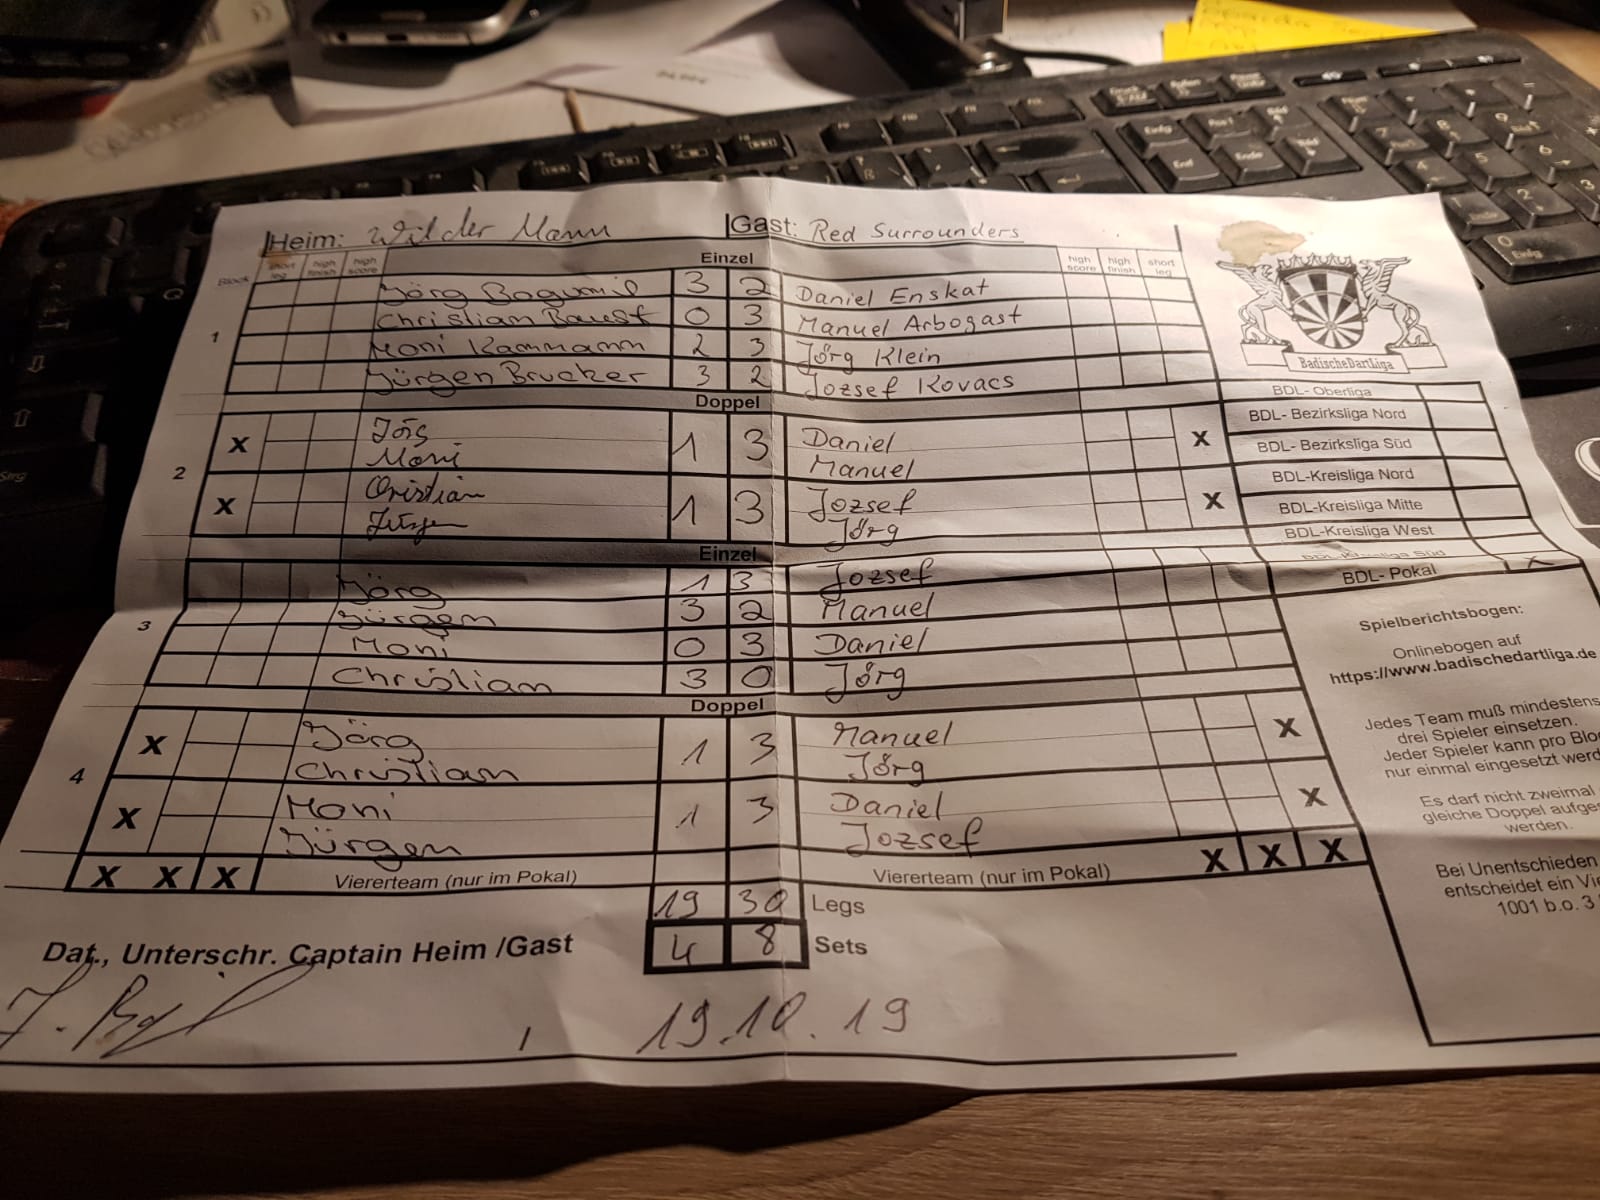 Heim: Wilder Mann Gast: Red Surrounders
Einzel
Block short leg high finish high score high score high finish short leg
1
Jörg Bogumil 3 2 Daniel Enskat
Christian Baust 0 3 Manuel Arbogast
Moni Kammann 2 3 Jörg Klein
Jürgen Brucker 3 2 Jozsef Kovacs
Doppel
2
X Jörg Moni 1 3 Daniel Manuel X
X Christian Jürgen 1 3 Jozsef Jörg X
Einzel
3
Jörg 1 3 Jozsef
Jürgen 3 2 Manuel
Moni 0 3 Daniel
Christian 3 0 Jörg
Doppel
4
X Jörg Christian 1 3 Manuel Jörg X
X Moni Jürgen 1 3 Daniel Jozsef X
X X X Viererteam (nur im Pokal) Viererteam (nur im Pokal) X X X
19 30 Legs
4 8 Sets
Dat., Unterschr. Captain Heim /Gast
19.10.19
BadischeDartLiga
BDL- Oberliga
BDL- Bezirksliga Nord
BDL- Bezirksliga Süd
BDL-Kreisliga Nord
BDL-Kreisliga Mitte
BDL-Kreisliga West
BDL-Kreisliga Süd X
BDL- Pokal
Spielberichtsbogen:
Onlinebogen auf
https://www.badischedartliga.de
Jedes Team muß mindestens
drei Spieler einsetzen.
Jeder Spieler kann pro Blo
nur einmal eingesetzt werd
Es darf nicht zweimal
gleiche Doppel aufge
werden.
Bei Unentschieden
entscheidet ein Vie
1001 b.o. 3
Druck
Einfg
Entf
Ende
Strg